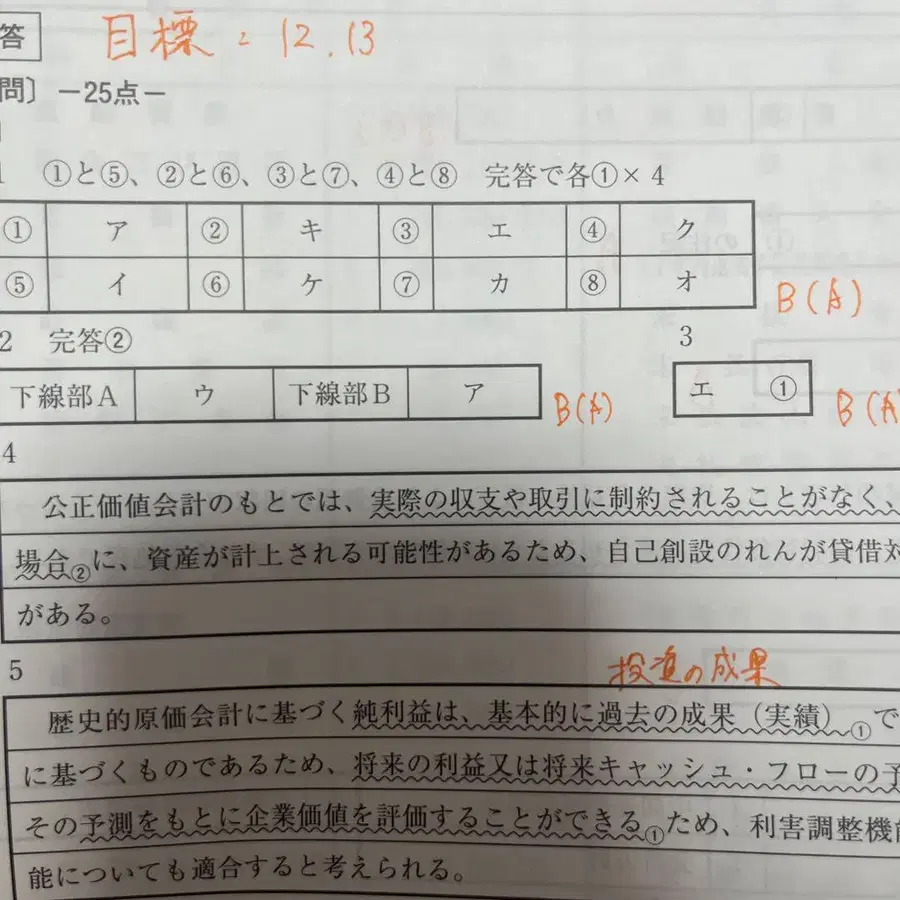 答 目標：12.13
問〕 −25点−
1 ①と⑤、②と⑥、③と⑦、④と⑧ 完答で各①×4
① ア ② キ ③ エ ④ ク
⑤ イ ⑥ ケ ⑦ カ ⑧ オ B(A)
2 完答② 3
下線部A ウ 下線部B ア B(A) エ ① B(A
4
公正価値会計のもとでは、実際の収支や取引に制約されることがなく、
場合②に、資産が計上される可能性があるため、自己創設のれんが貸借対
がある。
5 投資の成果
歴史的原価会計に基づく純利益は、基本的に過去の成果（実績）①で
に基づくものであるため、将来の利益又は将来キャッシュ・フローの予
その予測をもとに企業価値を評価することができる①ため、利害調整機能
能についても適合すると考えられる。